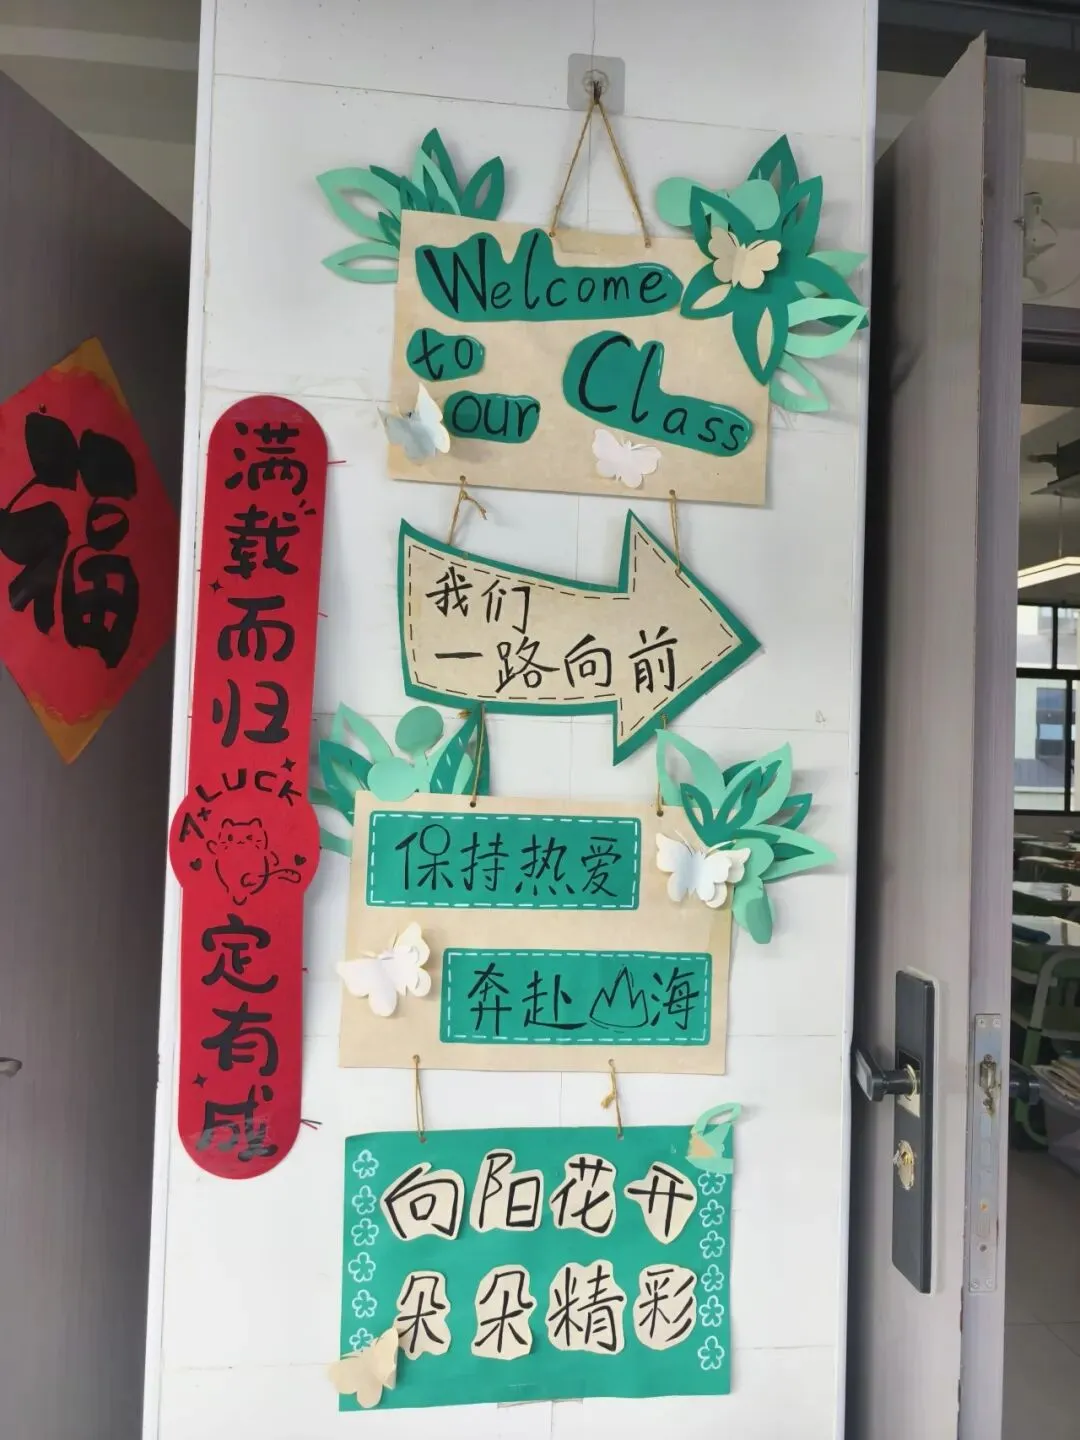 福
满载而归
A+ LUCK
定有
Welcome
to
our Class
我们
一路向前
保持热爱
奔赴山海
向阳花开
朵朵精彩